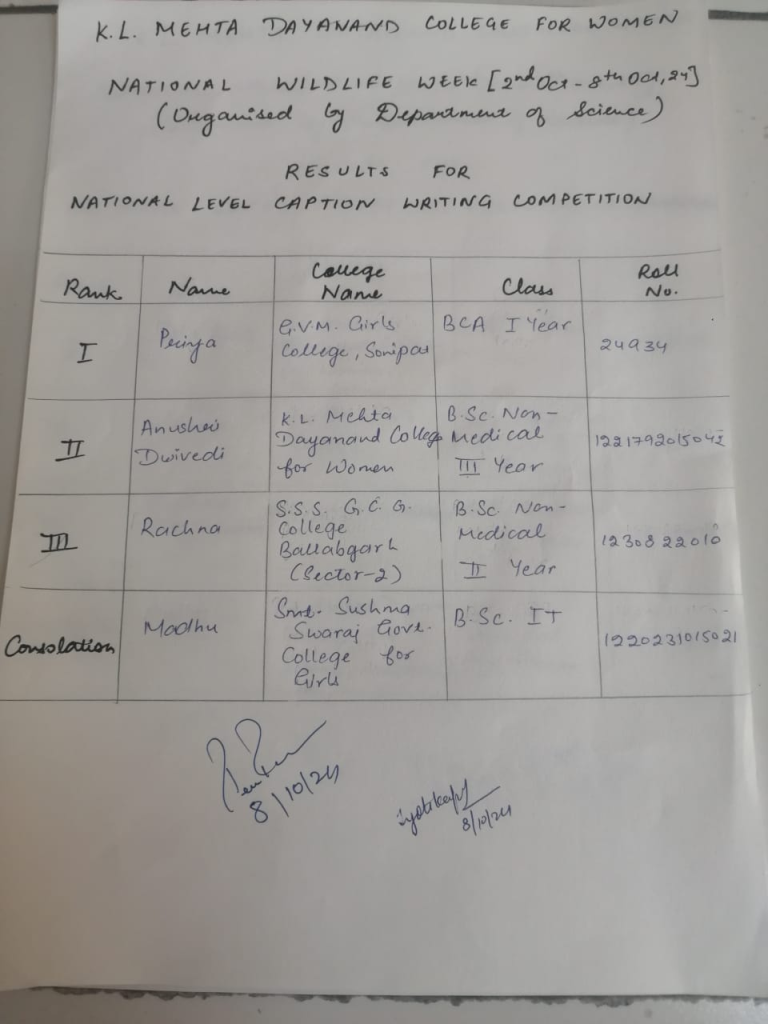 K.L. MEHTA DAYANAND COLLEGE FOR WOMEN
NATIONAL WILDLIFE WEEK [2nd Oct - 8th Oct, 24]
(Organised by Department of Science)
RESULTS FOR
NATIONAL LEVEL CAPTION WRITING COMPETITION
Rank Name College Name Class Roll No.
I Priya G.V.M. Girls College, Sonipat BCA I Year 24934
II Anushri Dwivedi K.L. Mehta Dayanand College for Women B.Sc. Non-Medical III Year 1221792015042
III Rachna S.S.S. G.C.G. College Ballabgarh (Sector-2) B.Sc. Non-Medical II Year 1230822010
Consolation Madhu Smt. Sushma Swaraj Govt. College for Girls B.Sc. IT 1220231015021
8/10/24
8/10/24